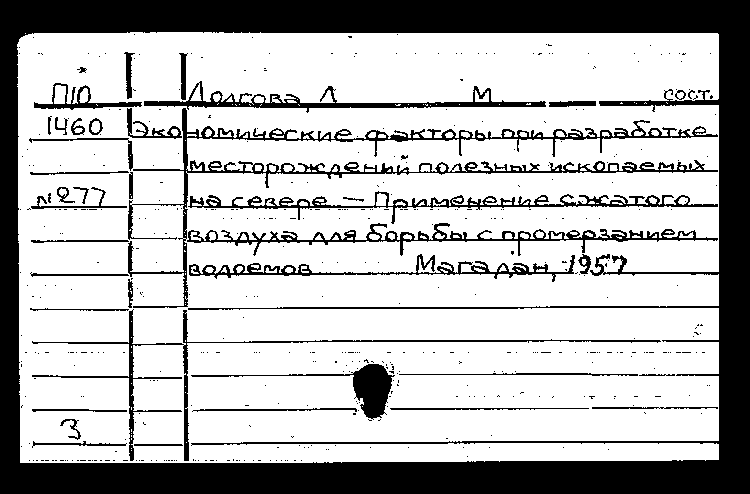 П10 Долгова, Л М сост.
1460 Экономические факторы при разработке
месторождений полезных ископаемых
№277 на севере. — Применение сжатого
воздуха для борьбы с промерзанием
водоемов Магадан, 1957
3.